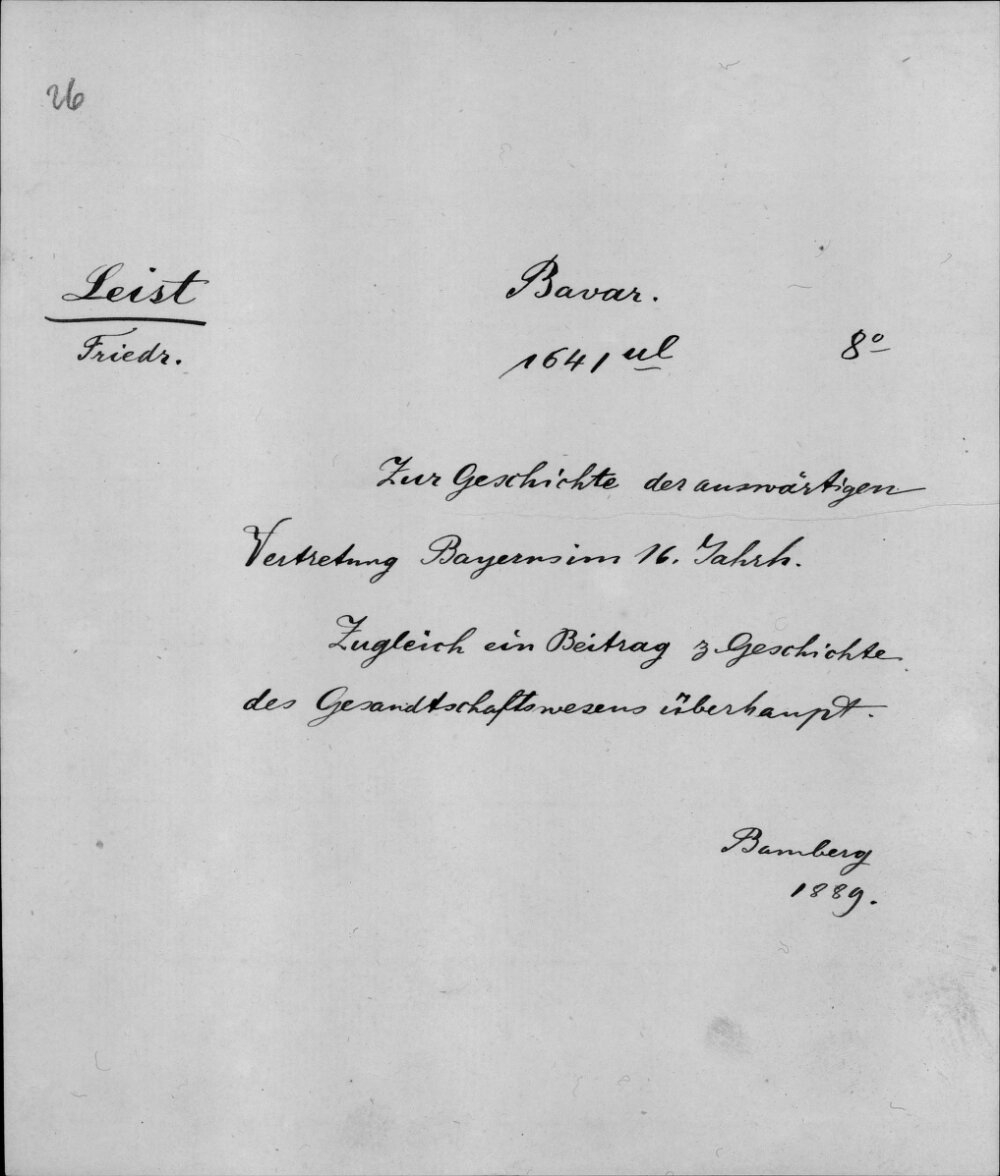 26
Leist
Friedr.
Bavar.
1641 ul
8o
Zur Geschichte der auswärtigen
Vertretung Bayerns im 16. Jahrh.
Zugleich ein Beitrag z. Geschichte
des Gesandtschaftswesens überhaupt.
Bamberg
1889.